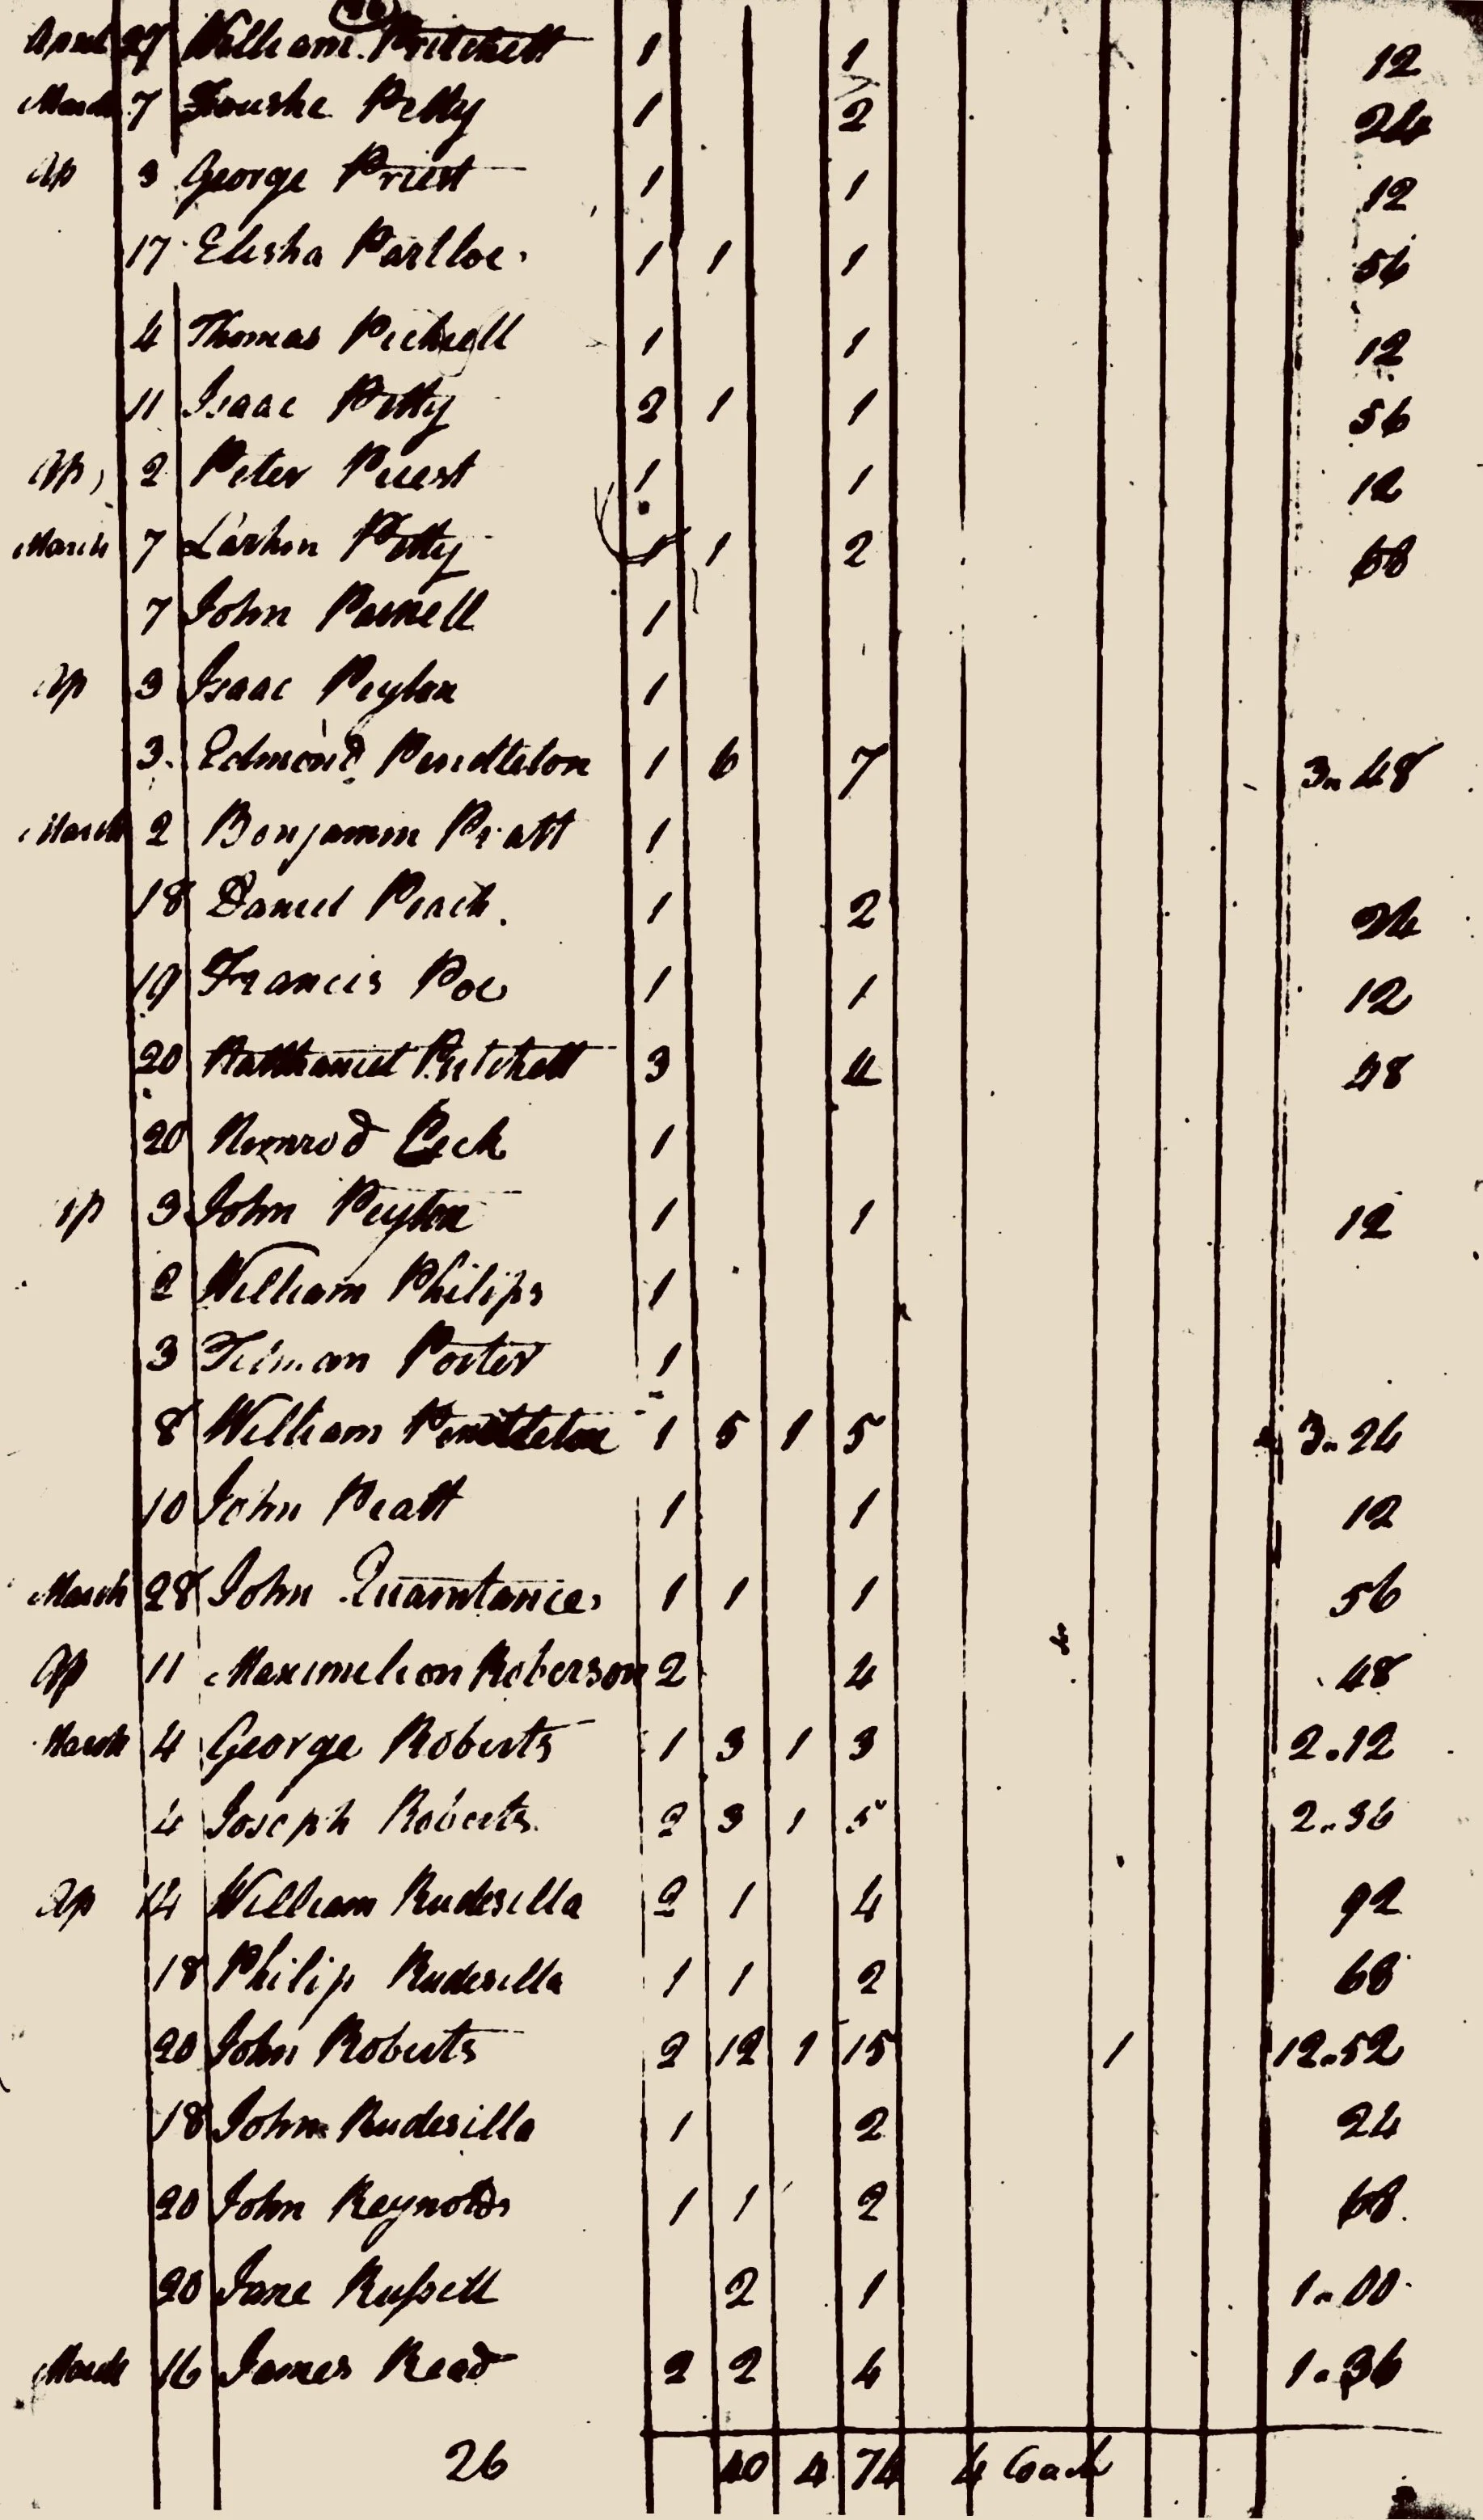 April 27 William Pritchett 1 1 12
March 7 Foushe Petty 1 2 24
Ap 3 George Priest 1 1 12
17 Elisha Partloe 1 1 1 56
4 Thomas Pickrell 1 1 12
11 Isaac Petty 2 1 1 56
Ap 2 Peter Priest 1 1 12
March 7 Larkin Petty 1 1 2 68
7 John Parnell 1
Ap 3 Isaac Peyton 1
3 Edmond Pendleton 1 6 7 3.. 48
March 2 Benjamin Pratt 1
18 Daniel Peach 1 2 24
19 Francis Poe 1 1 12
20 Nathaniel Pritchett 3 4 48
20 Nimrod Peck 1
Ap 3 John Peyton 1 1 12
2 William Philips 1
3 Tilman Porter 1
8 William Pendleton 1 5 1 5 3.. 24
10 John Pratt 1 1 12
March 28 John Quaintance 1 1 1 56
Ap 11 Maximelion Roberson 2 4 48
March 4 George Roberts 1 3 1 3 2.12
4 Joseph Roberts 2 3 1 5 2..36
Ap 14 William Rudesilla 2 1 4 92
18 Philip Rudesilla 1 1 2 68
20 John Roberts 2 12 1 15 1 12..52
18 John Rudesilla 1 2 24
20 John Reynolds 1 1 2 68
20 Jane Russell 2 1 1..00
March 16 James Read 2 2 4 1..36
26 40 4 74 4